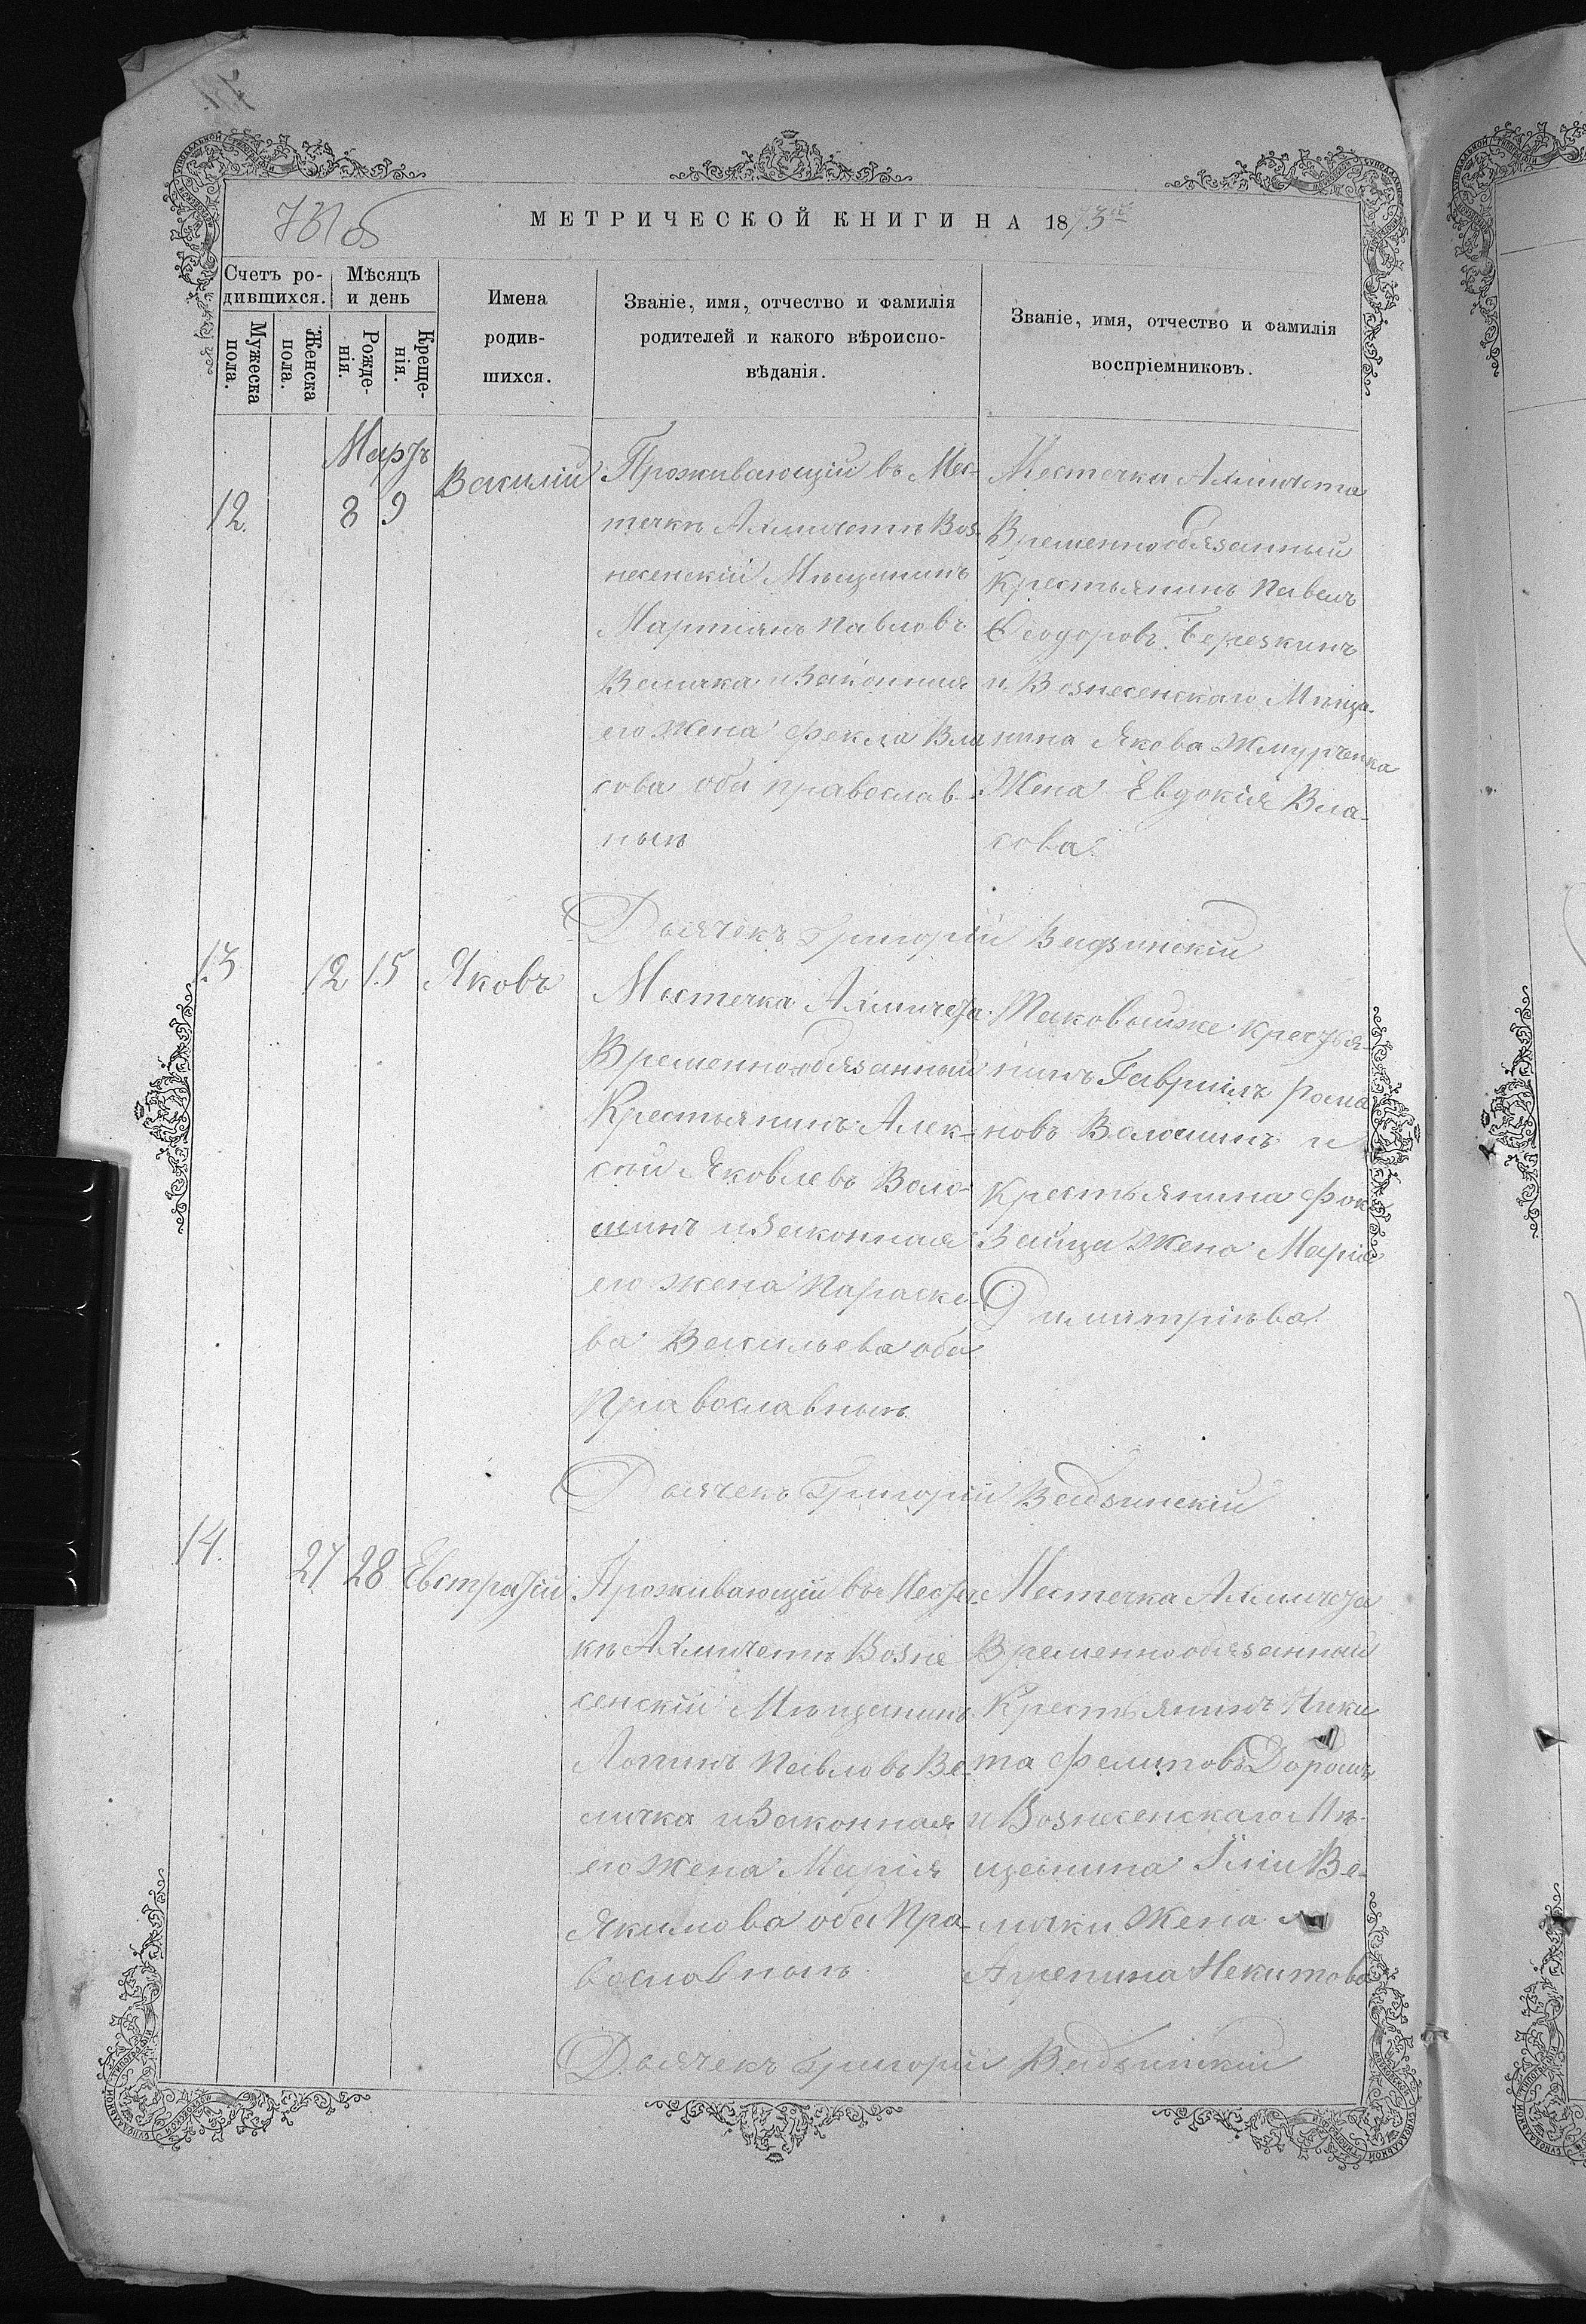 731 об
МЕТРИЧЕСКОЙ КНИГИ НА 1873й
Счетъ ро-
дившихся.
Мѣсяцъ
и день
Мужеска
пола.
Женска
пола.
Рожде-
нія.
Креще-
нія.
Имена
родив-
шихся.
Званіе, имя, отчество и фамилія
родителей и какого вѣроиспо-
вѣданія.
Званіе, имя, отчество и фамилія
воспріемниковъ.
Мартъ
12. 8 9 Василій
Проживающій въ Мес-
течкѣ Ахмичетѣ Воз-
несенскій Мѣщанинъ
Мартинъ Павловъ
Величка и Законная
его Жена Фекла Вла
сова оба православ-
ныя
Местечка Ахмичета
Временнообязанный
Крестьянинъ Павелъ
Феодоровъ Березкинъ
и Вознесенскаго Мѣща-
нина Якова Жмурченка
Жена Евдокія Вла-
сова
Дьячекъ Григорій
13 12 15 Яковъ
Местечка Ахмичета
Временнообязанный
Крестьянинъ Алек-
сѣй Яковлевъ Воло-
шинъ и Законная
его жена Параске-
ва Васильева оба
Православныя
Таковыйже Крестья-
нинъ Гавріилъ Рома
новъ Волошинъ и
Крестьянина Фок
Зайца Жена Марія
Димитріева
Дьячекъ Григорій
14. 27 28 Евстратій
Проживающій въ Месте-
кѣ Ахмичетѣ Возне
сенскій Мѣщанинъ
Логинъ Павловъ Ве-
личка и Законная
его Жена Марія
Якимова оба Пра-
вославныя
Местечка Ахмичета
Временнообязанный
Крестьянинъ Ники
та Фелиповъ Дорошъ
и Вознесенскаго Мѣ-
щанина Іліи Ве-
лички Жена
Агрепина Некитова
Дьячекъ Григорій